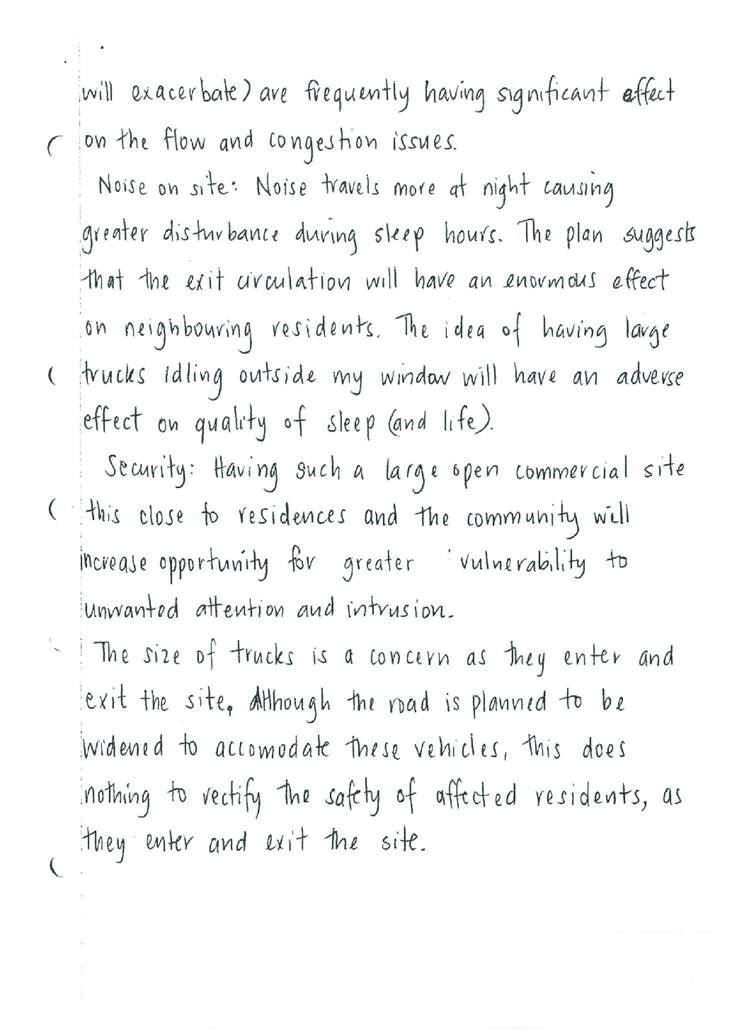 will exacerbate) are frequently having significant effect
on the flow and congestion issues.
Noise on site: Noise travels more at night causing
greater disturbance during sleep hours. The plan suggests
that the exit circulation will have an enormous effect
on neighbouring residents. The idea of having large
trucks idling outside my window will have an adverse
effect on quality of sleep (and life).
Security: Having such a large open commercial site
this close to residences and the community will
increase opportunity for greater vulnerability to
unwanted attention and intrusion.
The size of trucks is a concern as they enter and
exit the site, Although the road is planned to be
widened to accomodate these vehicles, this does
nothing to rectify the safety of affected residents, as
they enter and exit the site.